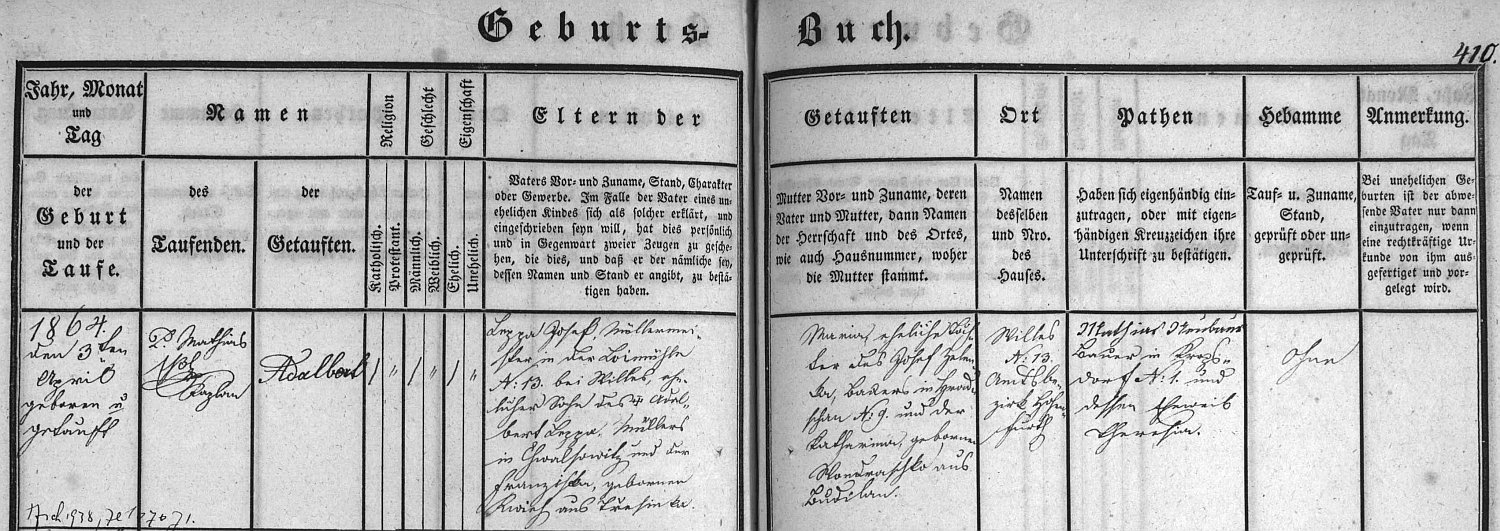 Geburts-Buch.
410.
Jahr, Monat
und
Tag
Namen
Religion
Geschlecht
Eigenschaft
Eltern der
Getauften
Ort
Pathen
Hebamme
Anmerkung.
der
Geburt
und der
Taufe.
des
Taufenden.
der
Getauften.
Katholisch.
Protestant.
Männlich.
Weiblich.
Ehelich.
Unehelich.
Vaters Vor- und Zuname, Stand, Charakter
oder Gewerbe. Im Falle der Vater eines un-
ehelichen Kindes sich als solcher erklärt, und
eingeschrieben seyn will, hat dies persönlich
und in Gegenwart zweier Zeugen zu gesche-
hen, die dies, und daß er der nämliche sey,
dessen Namen und Stand er angibt, zu bestä-
tigen haben.
Mutter Vor- und Zuname, deren
Vater und Mutter, dann Namen
der Herrschaft und des Ortes,
wie auch Hausnummer, woher
die Mutter stammt.
Namen
desselben
und Nro.
des
Hauses.
Haben sich eigenhändig ein-
zutragen, oder mit eigen-
händigen Kreuzzeichen ihre
Unterschrift zu bestätigen.
Tauf- u. Zuname,
Stand,
geprüft oder un-
geprüft.
Bei unehelichen Ge-
burten ist der abwe-
sende Vater nur dann
einzutragen, wenn
eine rechtkräftige Ur-
kunde von ihm aus-
gefertiget und vor-
gelegt wird.
1864.
den 3ten
April
geboren u
getauft
P. Mathias
Kaplan
Adalbert
Leppa Josef Müllermei-
ster in der Loimühle
N: 13. bei Willes, ehe-
licher Sohn des Adal-
bert Leppa, Müllers
in Chwalsowitz und der
Franziska, gebornen
aus
Maria, eheliche Toch-
ter des Josef
Bauers in
N: 9. und der
Katharina, geborne
Wondraschko aus
Budilau.
Willes
N: 13.
Amtsbe-
zirk Hohen-
furth
Mathias Neubauer
Bauer in
dorf N: 1. und
dessen Eheweib
Theresia.
Ohne